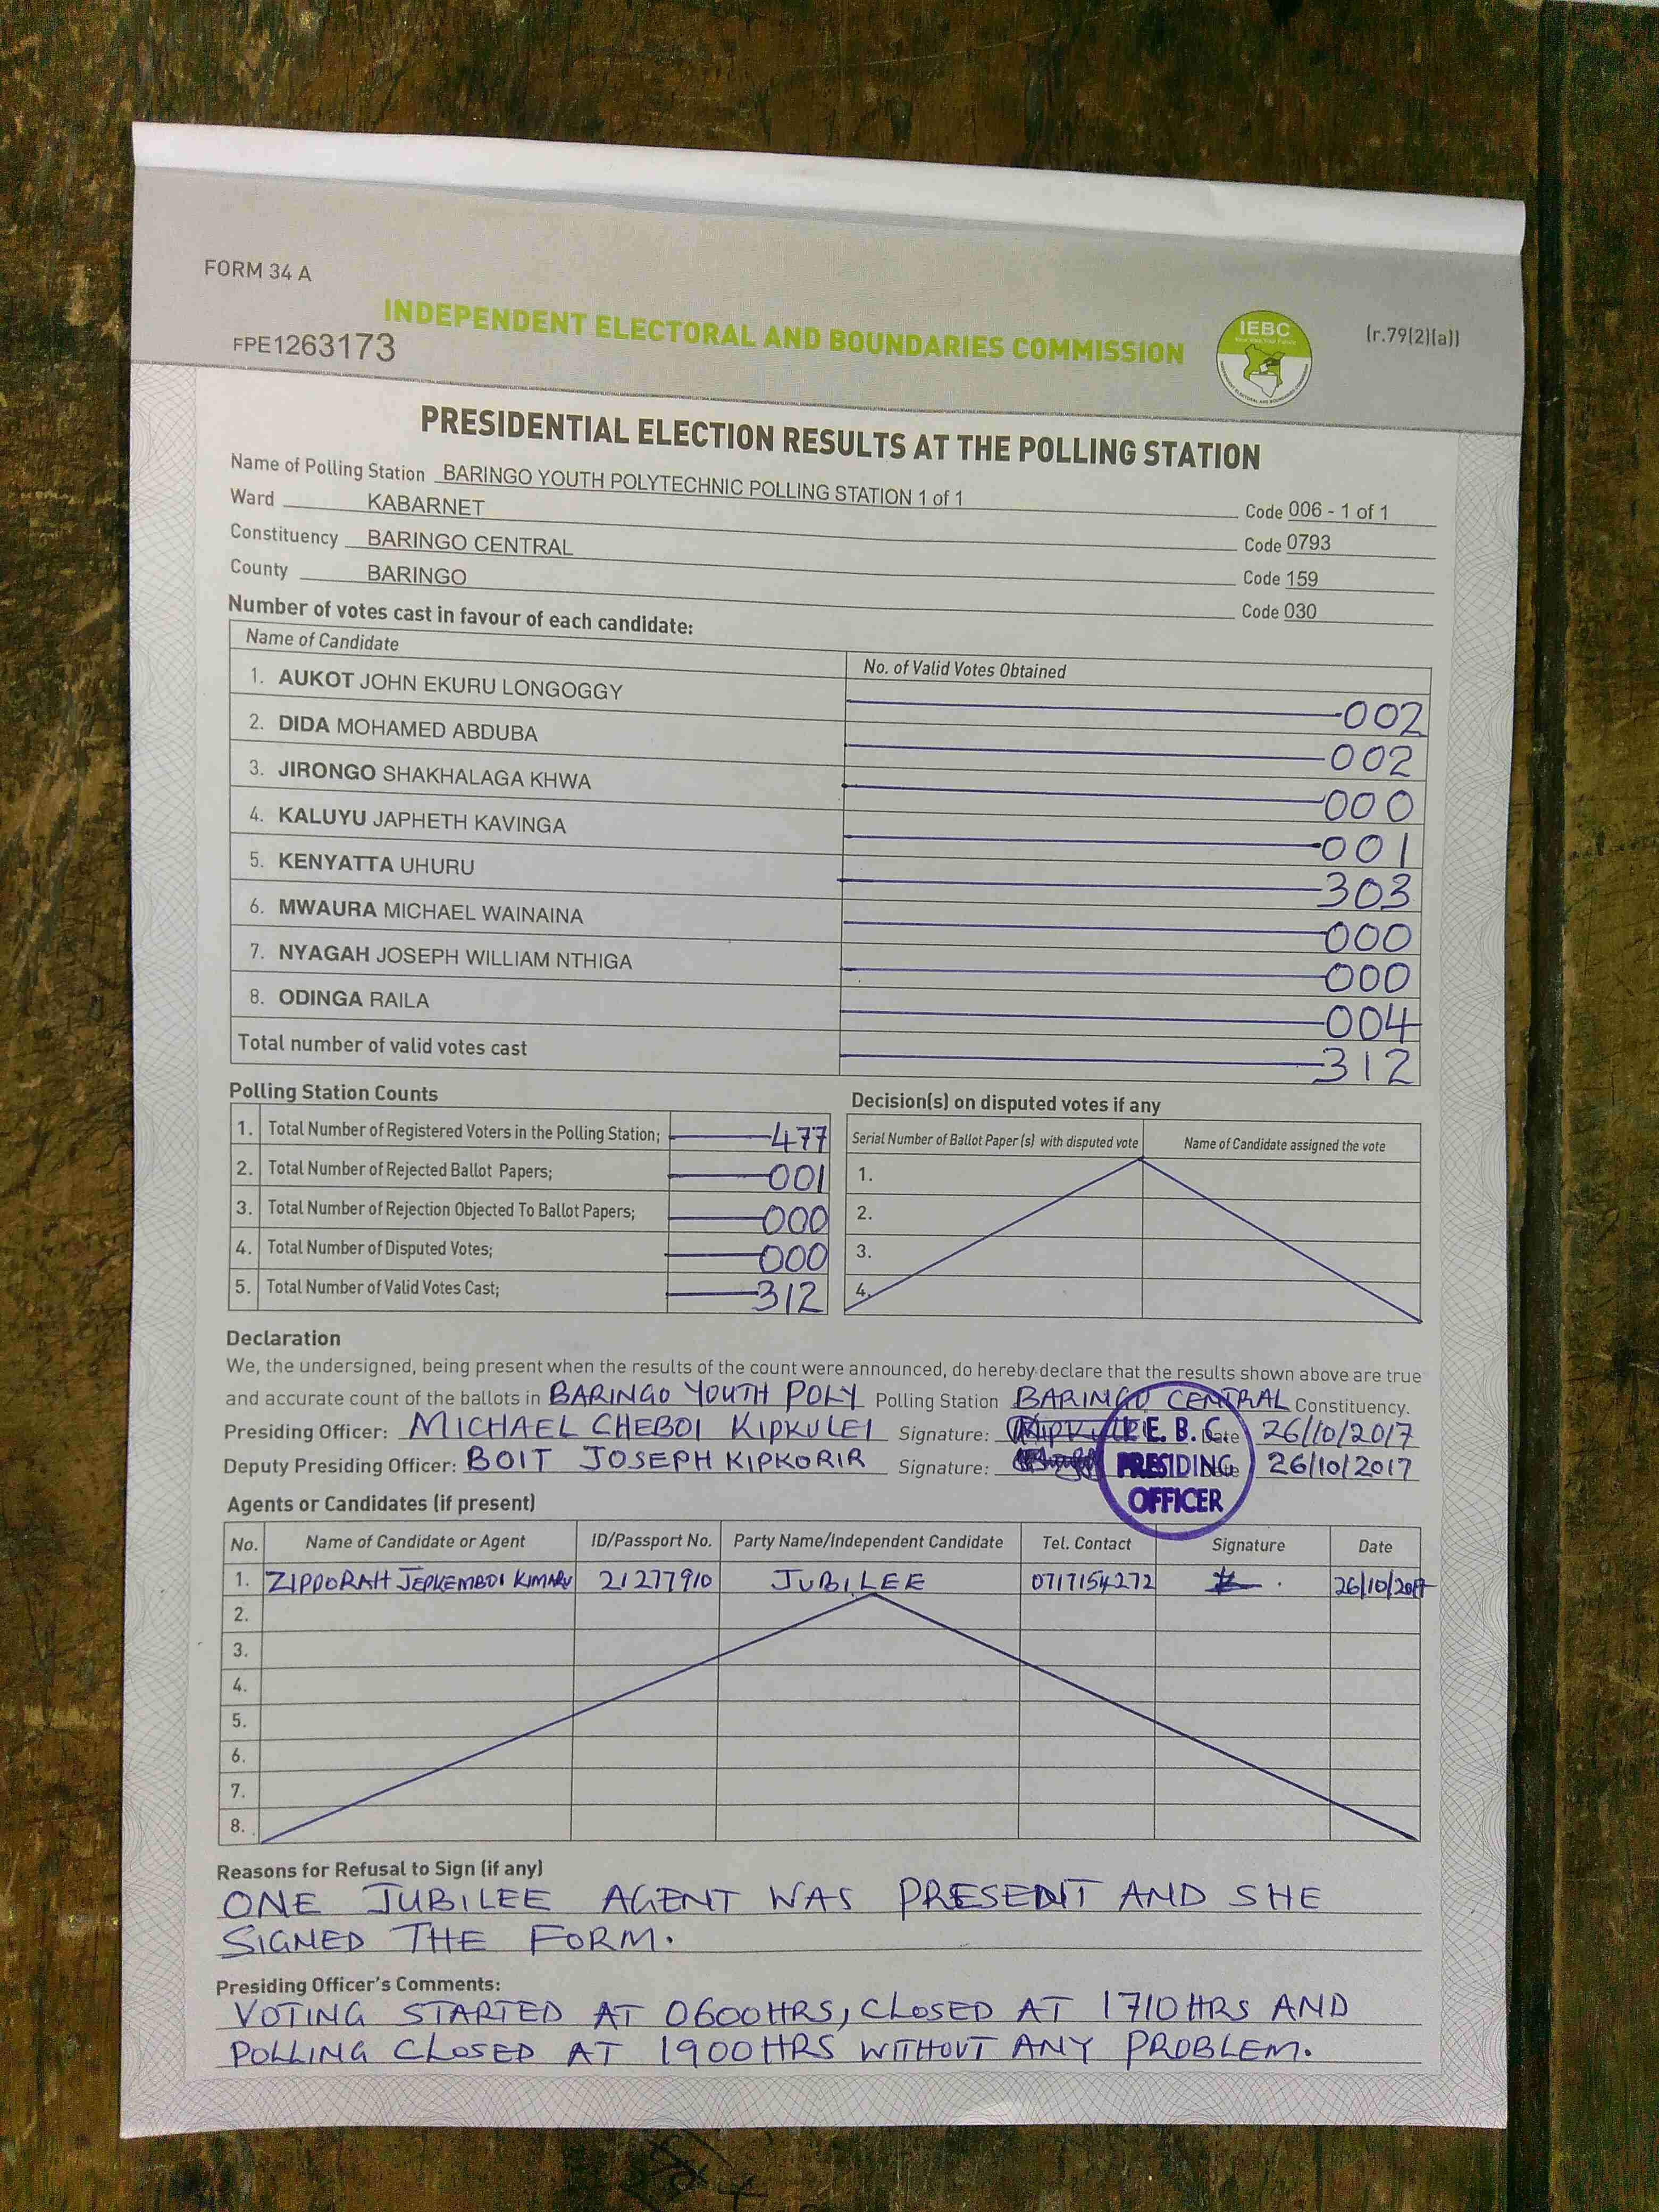 FORM 34 A
INDEPENDENT ELECTORAL AND BOUNDARIES COMMISSION
IEBC
(r.79(2)(a))
FPE1263173
PRESIDENTIAL ELECTION RESULTS AT THE POLLING STATION
Name of Polling Station BARINGO YOUTH POLYTECHNIC POLLING STATION 1 of 1 Code 006 - 1 of 1
Ward KABARNET Code 0793
Constituency BARINGO CENTRAL Code 159
County BARINGO Code 030
Number of votes cast in favour of each candidate:
Name of Candidate No. of Valid Votes Obtained
1. AUKOT JOHN EKURU LONGOGGY 002
2. DIDA MOHAMED ABDUBA 002
3. JIRONGO SHAKHALAGA KHWA 000
4. KALUYU JAPHETH KAVINGA 001
5. KENYATTA UHURU 303
6. MWAURA MICHAEL WAINAINA 000
7. NYAGAH JOSEPH WILLIAM NTHIGA 000
8. ODINGA RAILA 004
Total number of valid votes cast 312
Polling Station Counts
1. Total Number of Registered Voters in the Polling Station; 477
2. Total Number of Rejected Ballot Papers; 001
3. Total Number of Rejection Objected To Ballot Papers; 000
4. Total Number of Disputed Votes; 000
5. Total Number of Valid Votes Cast; 312
Decision(s) on disputed votes if any
Serial Number of Ballot Paper (s) with disputed vote Name of Candidate assigned the vote
1.
2.
3.
4.
Declaration
We, the undersigned, being present when the results of the count were announced, do hereby declare that the results shown above are true
and accurate count of the ballots in BARINGO YOUTH POLY Polling Station BARINGO CENTRAL Constituency.
Presiding Officer: MICHAEL CHEBOI KIPKULEI Signature: Date 26/10/2017
Deputy Presiding Officer: BOIT JOSEPH KIPKORIR Signature: Date 26/10/2017
I.E.B.C.
PRESIDING
OFFICER
Agents or Candidates (if present)
No. Name of Candidate or Agent ID/Passport No. Party Name/Independent Candidate Tel. Contact Signature Date
1. ZIPPORAH JEPKEMBOI KIMARU 21277910 JUBILEE 0717154272 26/10/2017
2.
3.
4.
5.
6.
7.
8.
Reasons for Refusal to Sign (if any)
ONE JUBILEE AGENT WAS PRESENT AND SHE
SIGNED THE FORM.
Presiding Officer's Comments:
VOTING STARTED AT 0600HRS, CLOSED AT 1710HRS AND
POLLING CLOSED AT 1900HRS WITHOUT ANY PROBLEM.